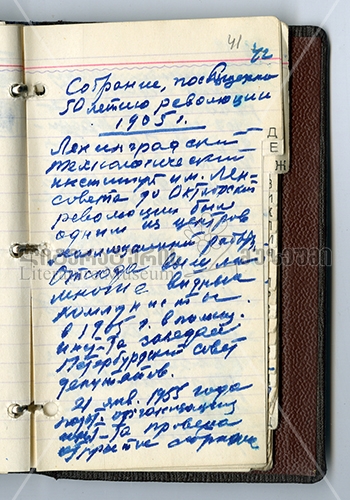 41 42
Собрание, посвященно
50летию революции
1905 г.
Ленинградский
технологический
институт им. Лен-
совета до Октябрьской
революции был
одним из центров
Отсюда вышли
многие видные
коммунисты.
в 1905 г. в помещ.
инст-та заседал
Петербургский совет
депутатов.
21 янв. 1955 года
парт. организация
инст-та провела
Literature Museum
Д
Е
Ж
З
И
К
Л